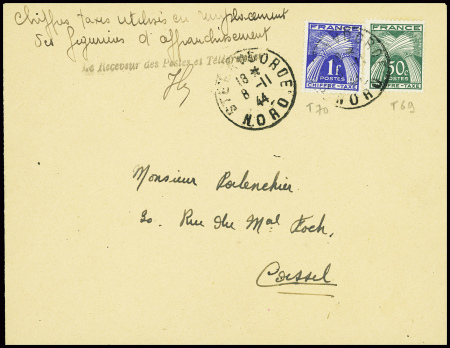 Chiffres taxes utilisés en remplacement
des figurines d'affranchissement
Le Receveur des Postes et Télégraphes
STEENVOORDE
18 *
8 - 11
44
NORD
FRANCE
1F
POSTES
CHIFFRE-TAXE
FRANCE
50c
POSTES
CHIFFRE-TAXE
NORD
T70
T69
Monsieur
20. Rue du Mal Foch,
Cassel